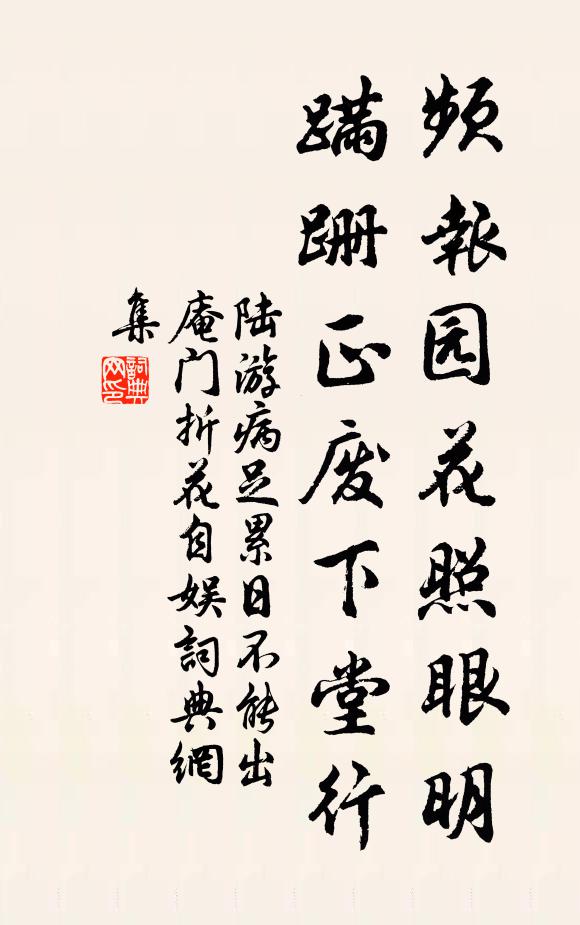 频報园花照眼明
蹣跚正废下堂行
陆游病足累日不能出
庵门折花自娱詞典網
集
詞典
网印